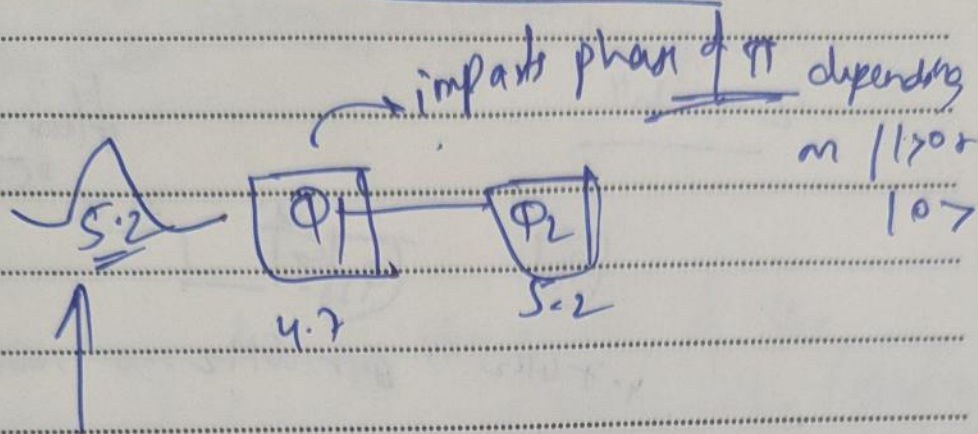 imparts phase of π depending
on |1> or
|0>
5.2 Q1 Q2
4.7 5.2